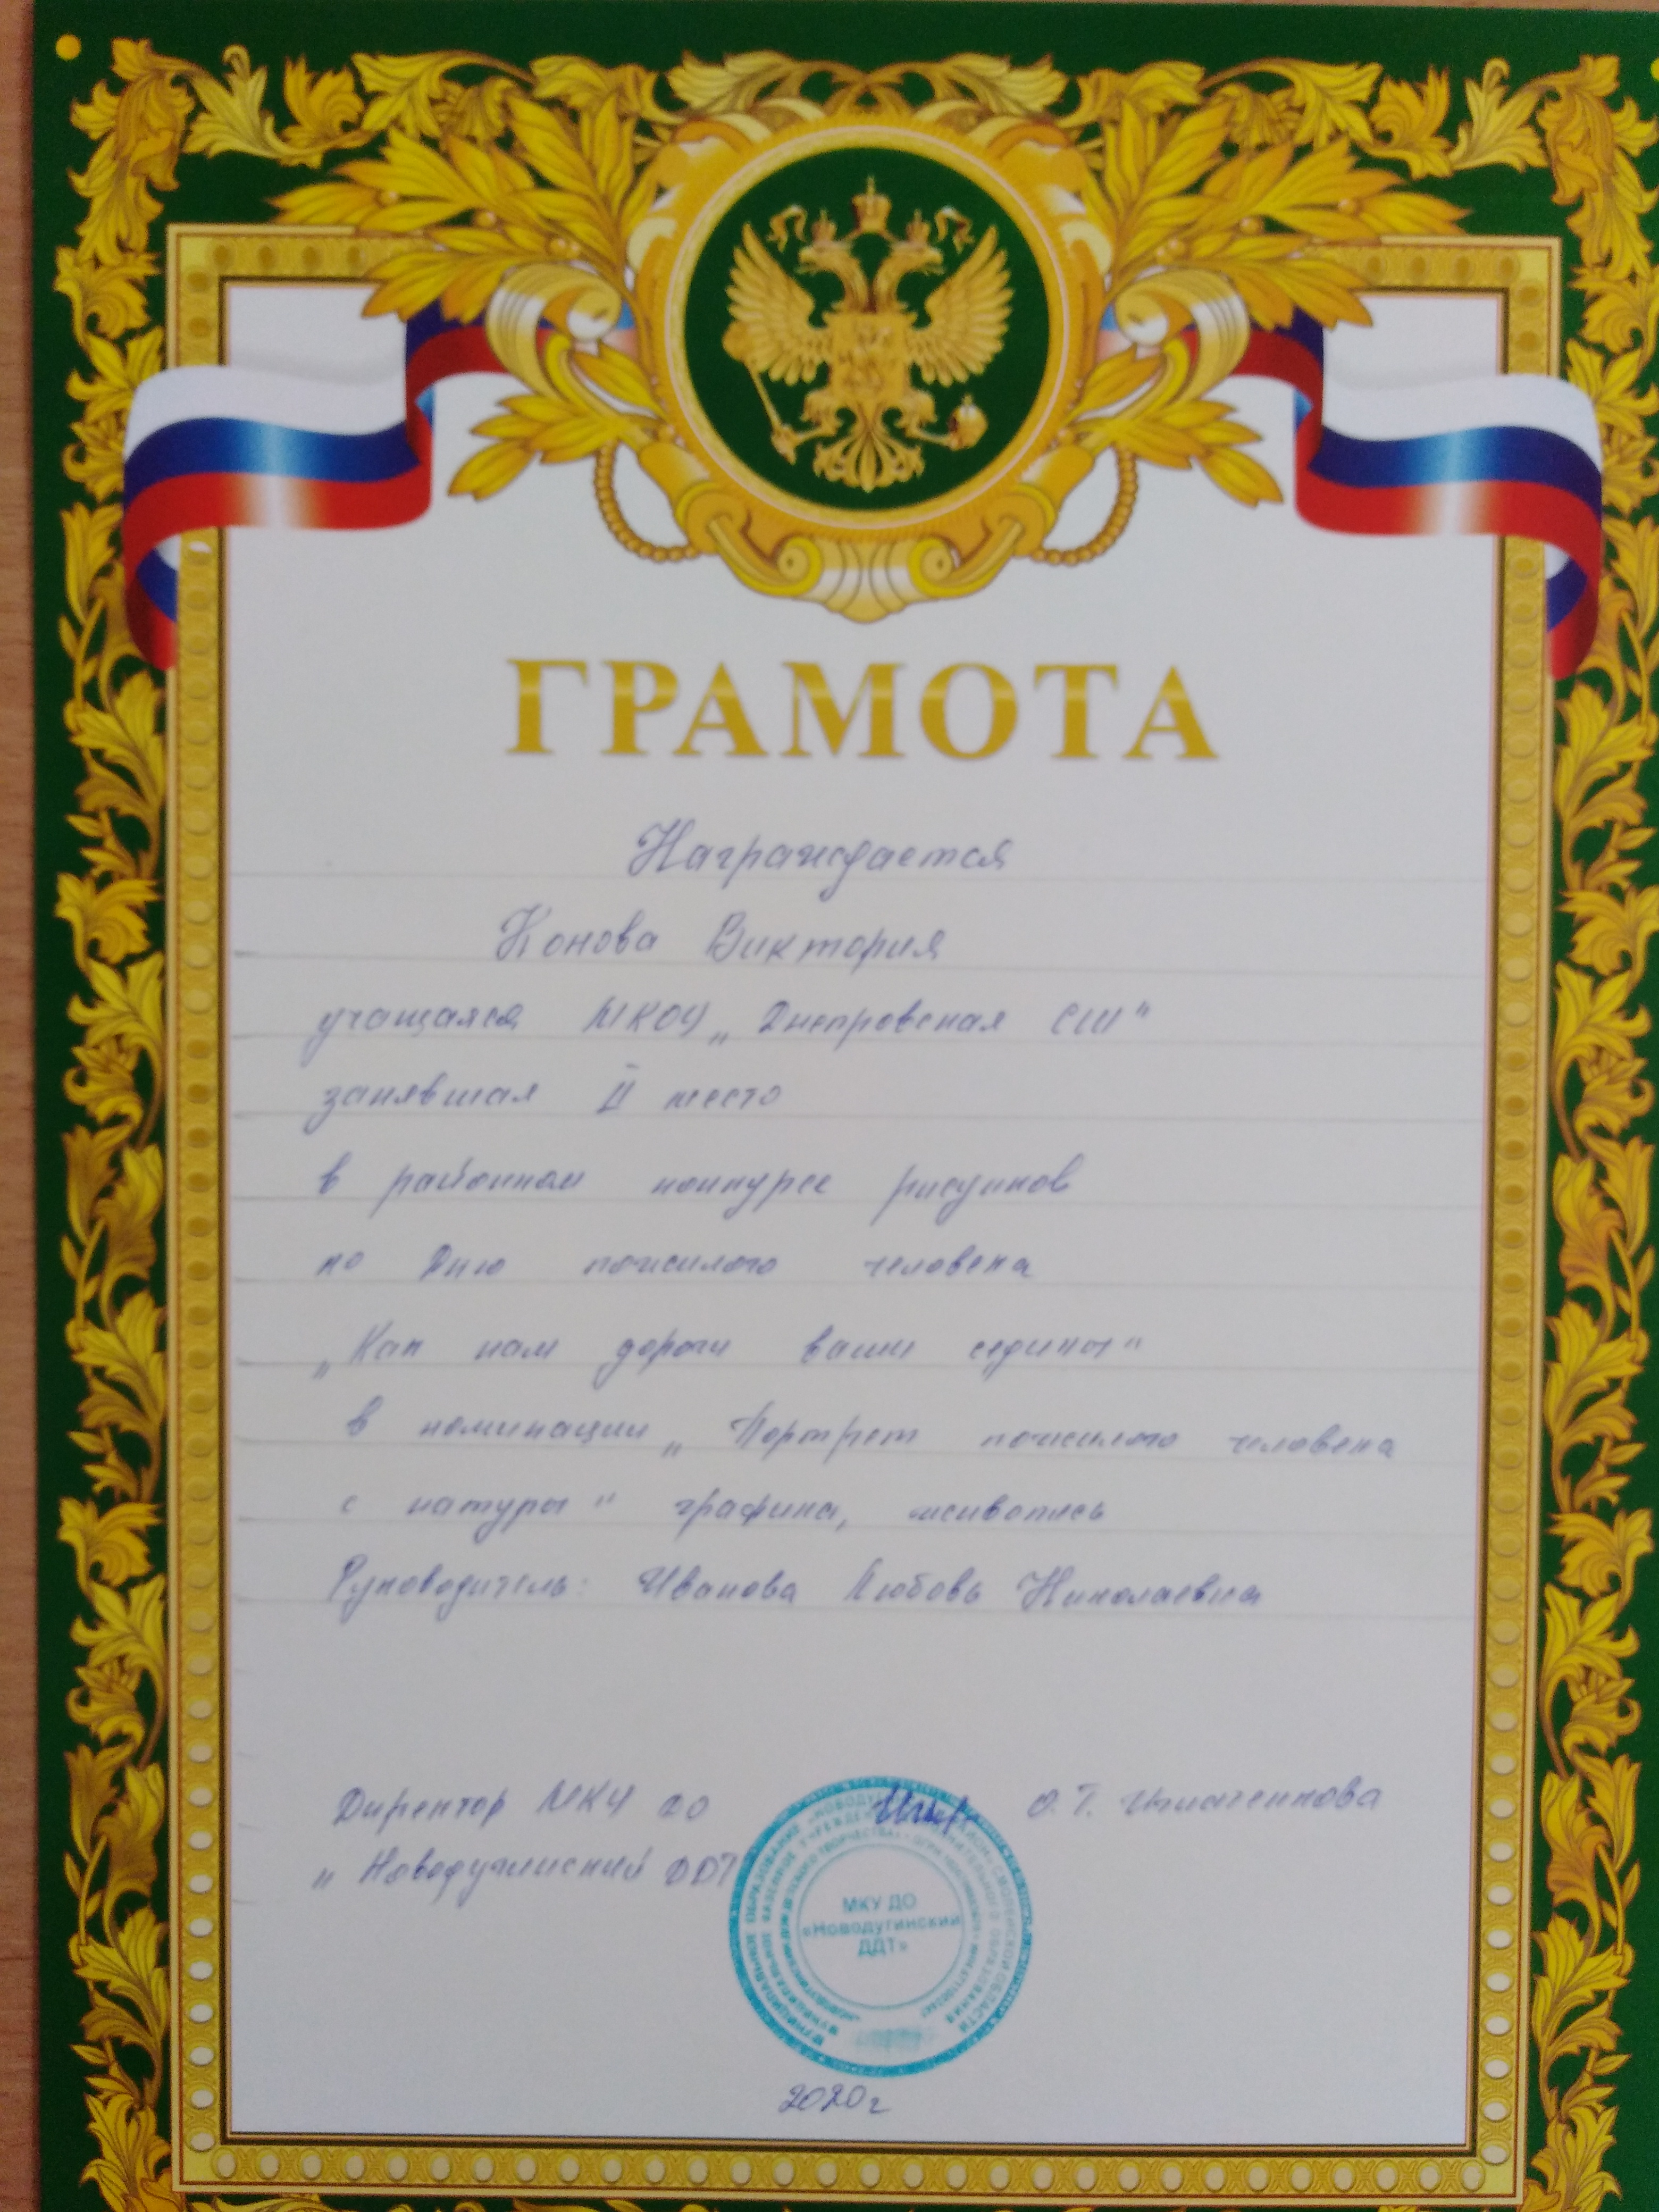 ГРАМОТА
Награждается
Конова Виктория
учащаяся МКОУ „Днепровская СШ"
занявшая II место
в районном конкурсе рисунков
по Дню пожилого человека
„Как нам дороги ваши седины"
в номинации „Портрет пожилого человека
с натуры" графика, живопись
Руководитель: Иванова Любовь Николаевна
Директор МКУ ДО О.Т.
„Новодугинский ДДТ
МКУ ДО
«Новодугинский
ДДТ»
2020г